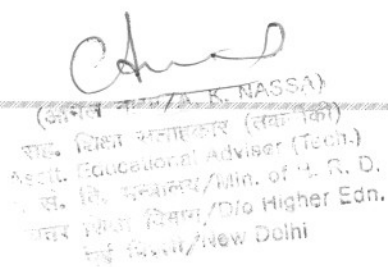 (अनिल नासा/A. K. NASSA)
सह. शिक्षा सलाहकार (तकनीकी)
Asstt. Educational Adviser (Tech.)
सं. वि. मन्त्रालय/Min. of H. R. D.
शिक्षा विभाग/D/o Higher Edn.
नई दिल्ली/New Delhi